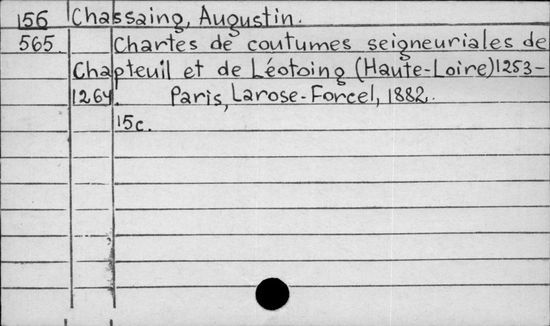 156 Chassaing, Augustin.
565. Chartes de coutumes seigneuriales de
Chapteuil et de Léotoing (Haute-Loire) 1253-
1264. Paris, Larose-Forcel, 1882.
15c.